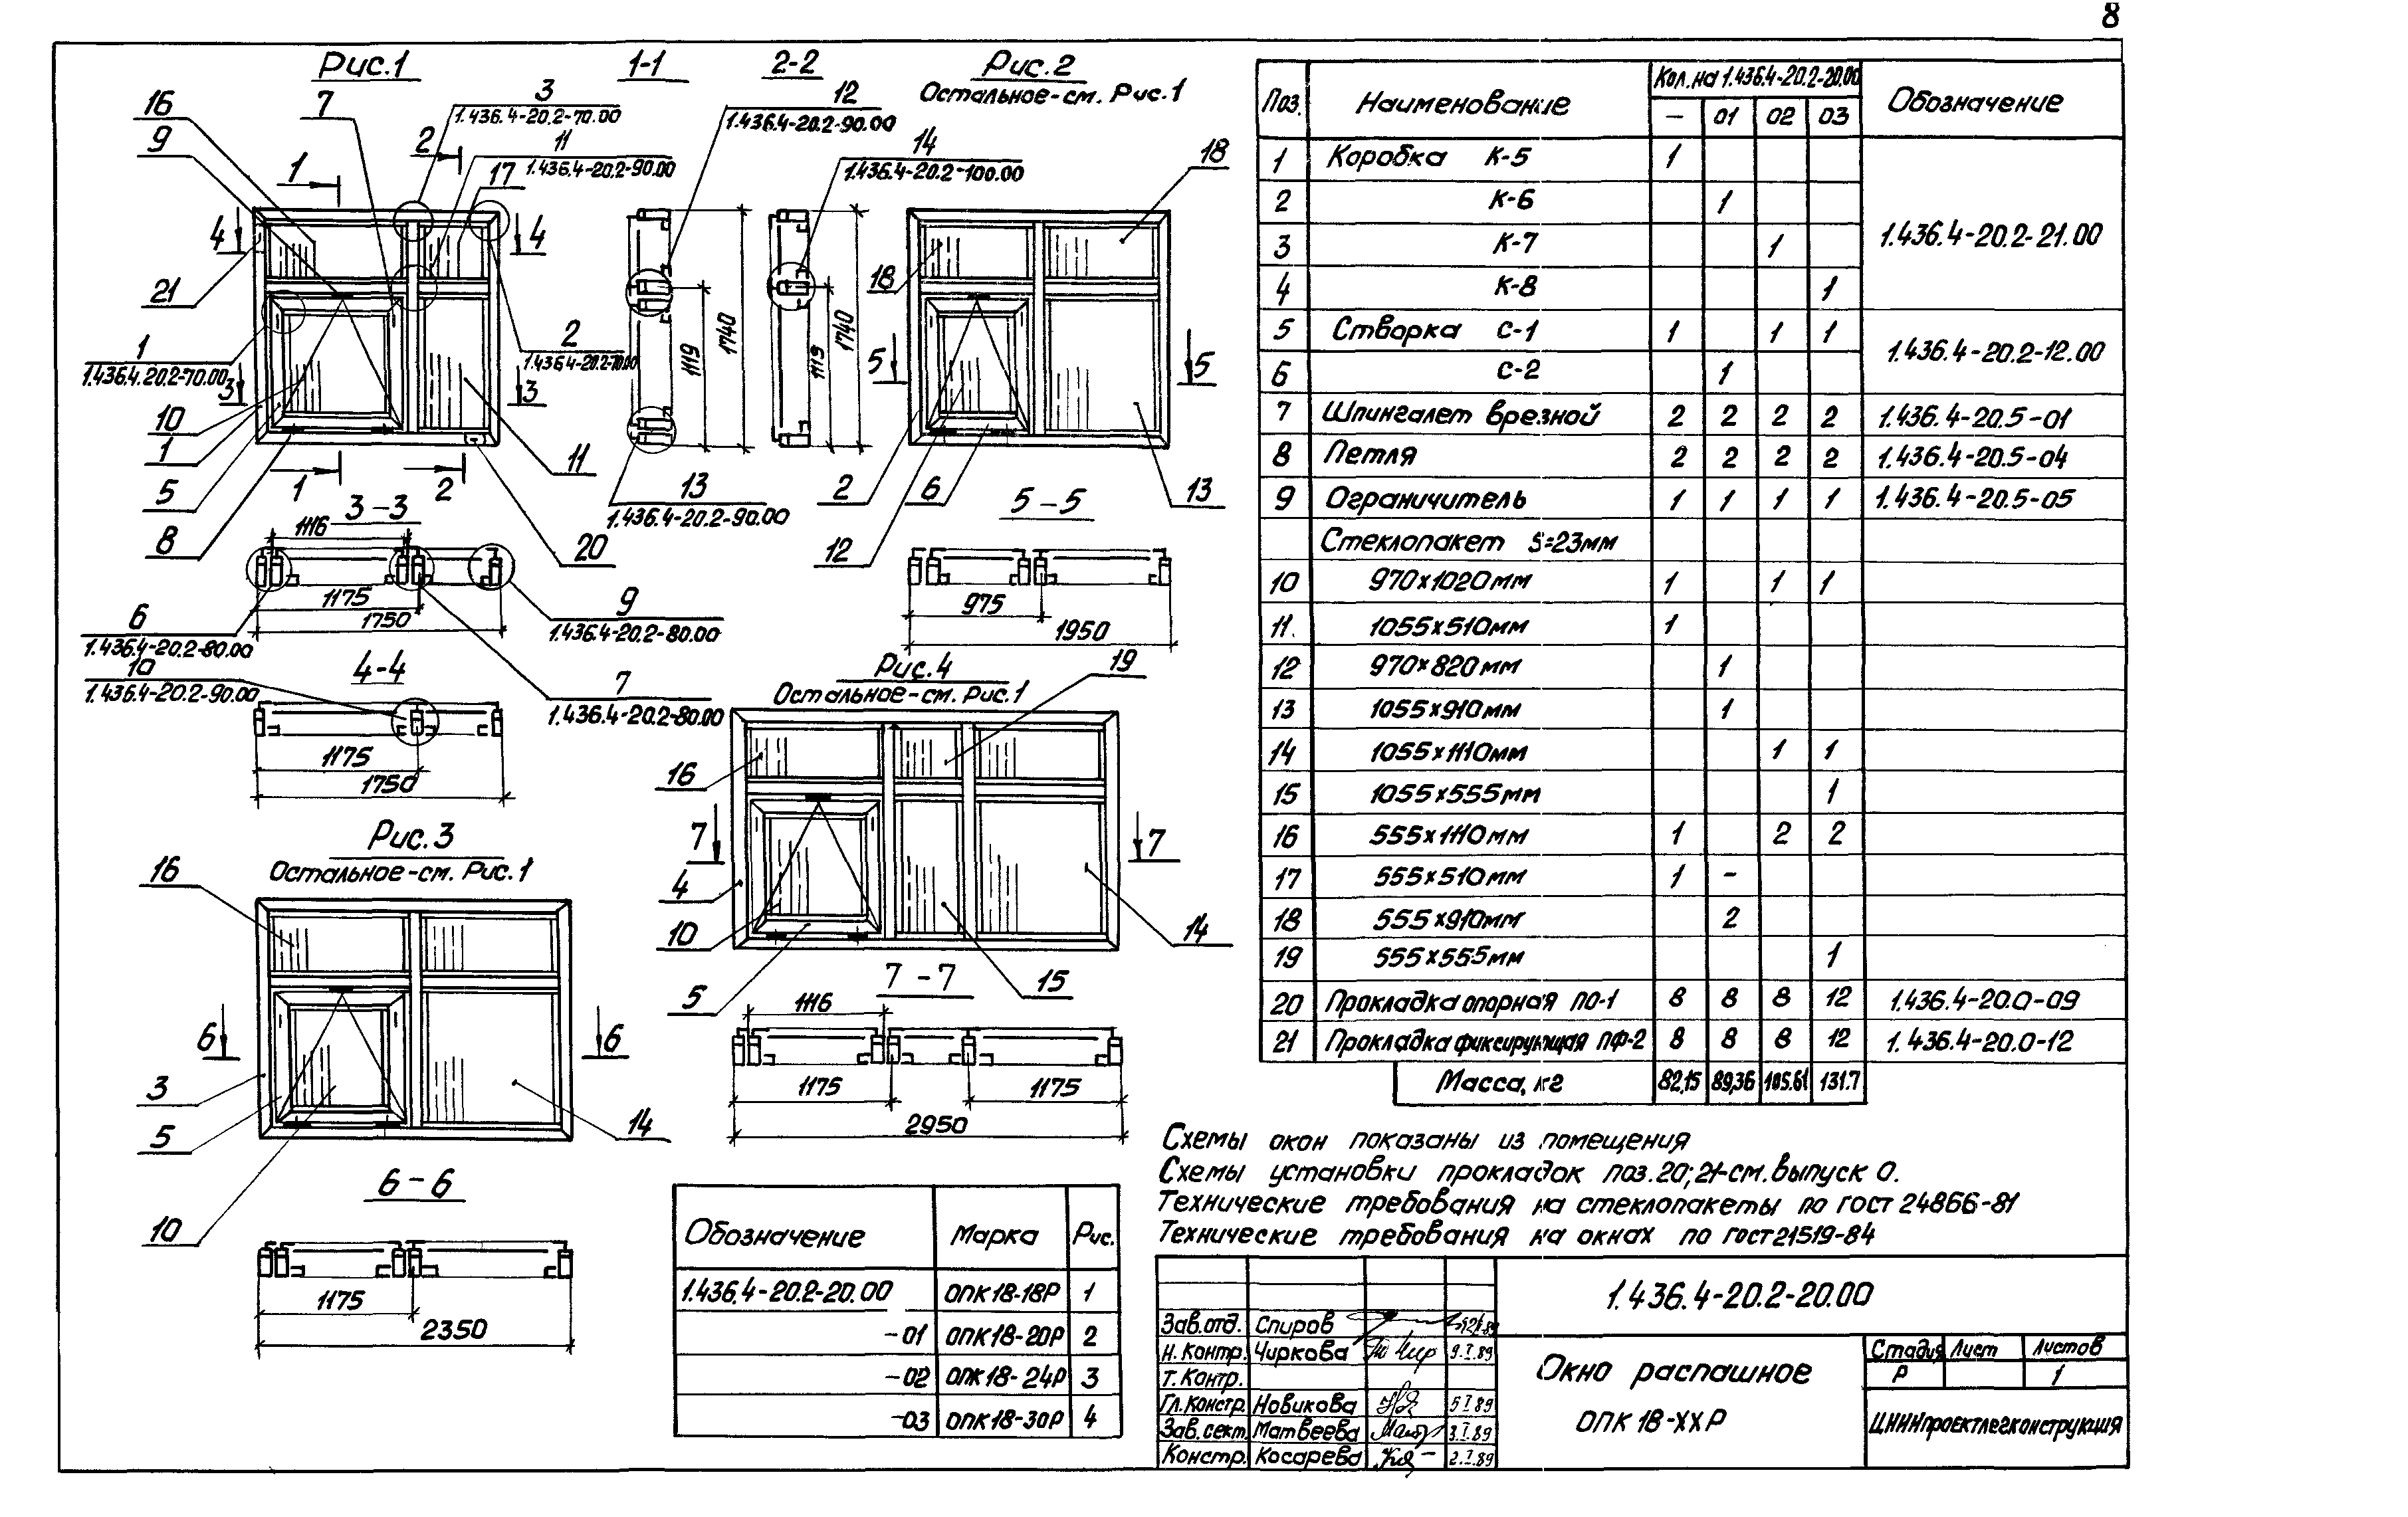 8
Рис.1
1-1
2-2
Рис.2
Остальное-см. Рис.1
16
7
3
1.436.4-20.2-70.00
12
1.436.4-20.2-90.00
9
2
11
1.436.4-20.2-90.00
14
1.436.4-20.2-100.00
18
1
17
4
4
21
18
1119
1740
1119
1740
1
1.436.4.20.2-70.00
2
1.436.4-20.2-70.00
3
3
5
5
10
1
11
5
1
2
13
1.436.4-20.2-90.00
2
6
13
8
3-3
1116
20
12
5-5
1175
1750
975
1950
6
1.436.4-20.2-80.00
9
1.436.4-20.2-80.00
10
1.436.4-20.2-90.00
4-4
7
1.436.4-20.2-80.00
1175
1750
Рис.4
Остальное-см. Рис.1
19
16
7
7
4
10
14
5
7-7
15
1116
1175
1175
2950
Рис.3
Остальное-см. Рис.1
16
6
6
3
5
14
10
6-6
1175
2350
Поз. Наименование Кол.на 1.436.4-20.2-20.00 Обозначение
— 01 02 03
1 Коробка К-5 1
2 К-6 1
3 К-7 1
4 К-8 1
1.436.4-20.2-21.00
5 Створка С-1 1 1 1
6 С-2 1
1.436.4-20.2-12.00
7 Шпингалет врезной 2 2 2 2 1.436.4-20.5-01
8 Петля 2 2 2 2 1.436.4-20.5-04
9 Ограничитель 1 1 1 1 1.436.4-20.5-05
Стеклопакет S=23мм
10 970х1020мм 1 1 1
11. 1055х510мм 1
12 970х820мм 1
13 1055х910мм 1
14 1055х1110мм 1 1
15 1055х555мм 1
16 555х1110мм 1 2 2
17 555х510мм 1 -
18 555х910мм 2
19 555х555мм 1
20 Прокладка опорная ПО-1 8 8 8 12 1.436.4-20.0-09
21 Прокладка фиксирующая ПФ-2 8 8 8 12 1.436.4-20.0-12
Масса, кг 82,15 89,36 105.61 131.7
Схемы окон показаны из помещения
Схемы установки прокладок поз.20;21-см.выпуск 0.
Технические требования на стеклопакеты по ГОСТ 24866-81
Технические требования на окнах по ГОСТ21519-84
Обозначение Марка Рис.
1.436.4-20.2-20.00 ОПК18-18Р 1
-01 ОПК18-20Р 2
-02 ОПК18-24Р 3
-03 ОПК18-30Р 4
Зав.отд. Спиров
Н.Контр. Чиркова 9.I.89
Т.Контр.
Гл.Констр. Новикова 5 I 89
Зав.сект. Матвеева 3.I.89
Констр. Косарева 2.I.89
1.436.4-20.2-20.00
Окно распашное
ОПК 18-ХХР
Стадия Лист Листов
Р 1
ЦНИИпроектлегконструкция